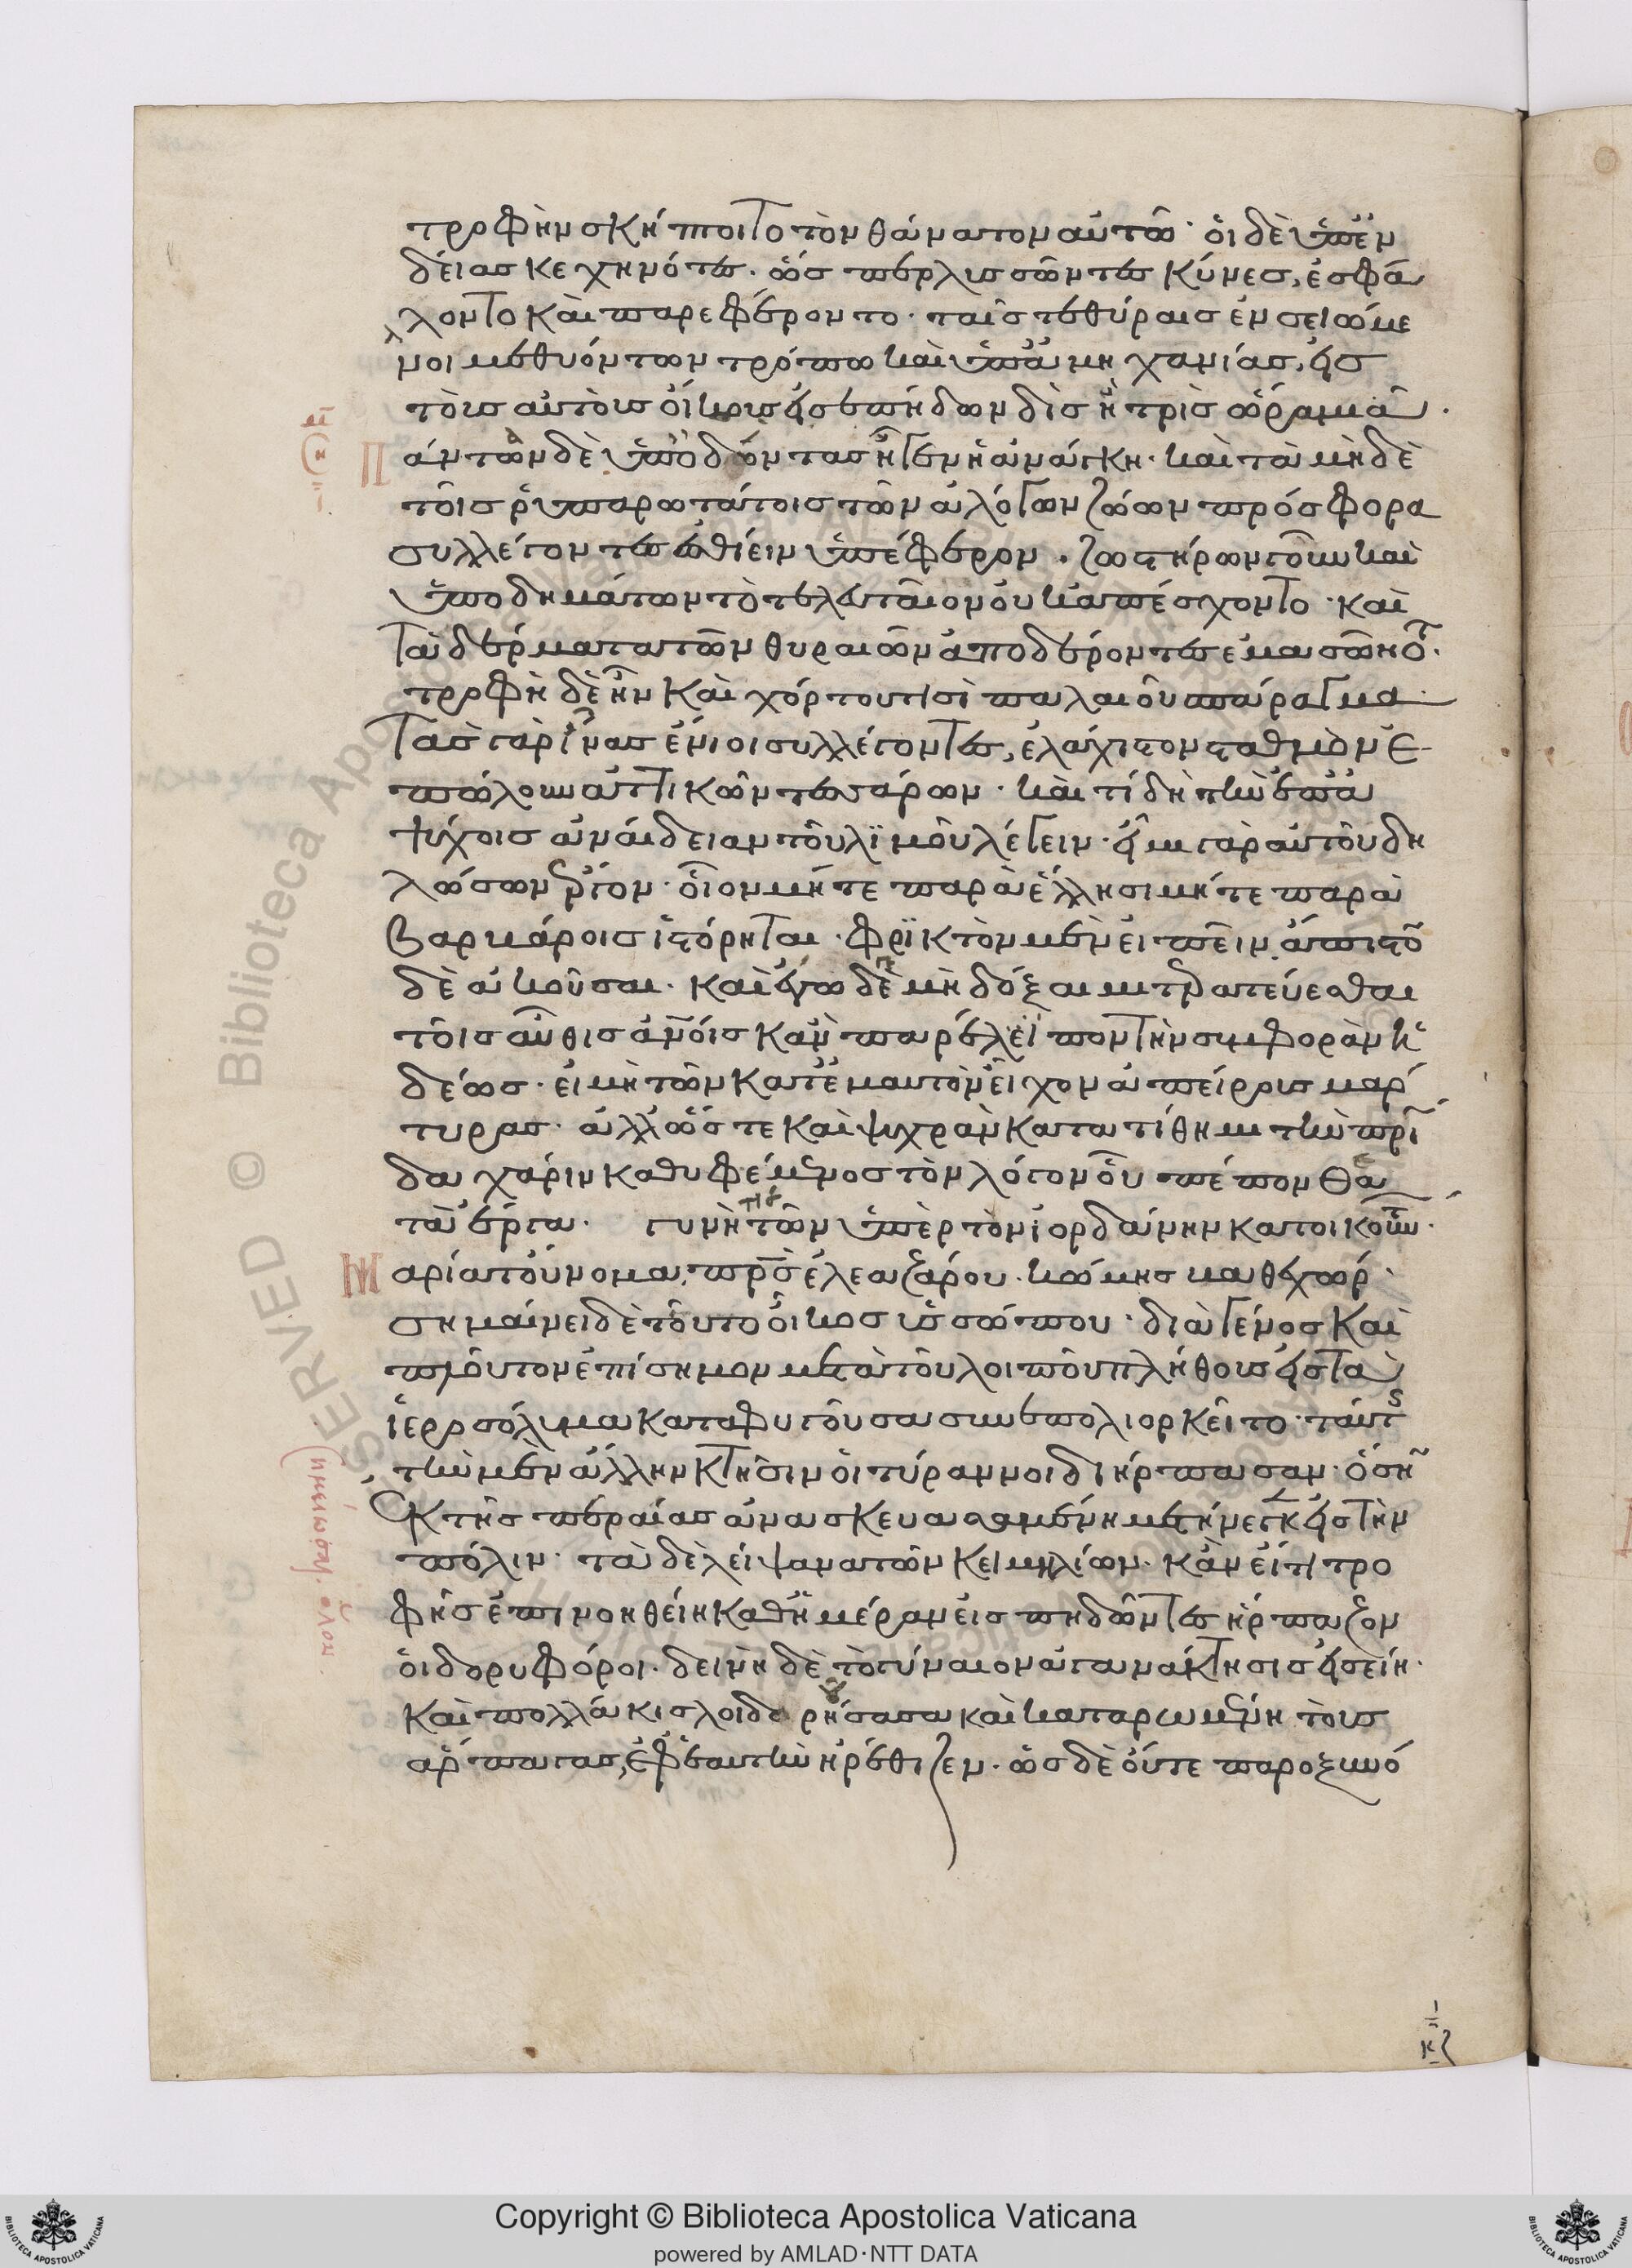 τροφὴν σκήπτοιτο τὸν θάνατον αὐτῶ· οἱ δὲ ὑπ' ἐν
δείας κεχηνότες· ὡς περ λυσσῶντες κύνες, ἐσφάλ
λοντο καὶ παρεφέροντο· ταῖς τε θύραις ἐνσειόμε
νοι μεθυόντων τρόπω καὶ ὑπ' ἀμηχανίας, εἰς
τοὺς αὐτοὺς οἴκους εἰσεπήδων δὶς ἢ τρὶς ὥρα μιᾶ·
πάντα δὲ ὑπ' ὀδόντας ἦγεν ἡ ἀνάγκη· καὶ τὰ μὴ δὲ
τοῖς ῥυπαρωτάτοις τῶν ἀλόγων ζώων πρόσφορα
συλλέγοντες ἐσθίειν ὑπέφερον· ζωστήρων γοῦν καὶ
ὑποδημάτων τὸ τελευταῖον οὐκ ἀπέσχοντο· καὶ
τὰ δέρματα τῶν θυραιῶν ἀποδέροντες ἐμασῶντο·
τροφὴ δὲ ἦν καὶ χόρτου τισὶ παλαιοῦ σπάραγμα·
τὰς γὰρ ἶνας ἔνιοι συλλέγοντες, ἐλάχιστον σταθμὸν ἐ
πώλουν ἀττικῶν τεσσάρων· καὶ τί δεῖ τὴν ἐπ' ἀ
ψύχοις ἀναίδειαν τοῦ λιμοῦ λέγειν· εἶμι γὰρ αὐτοῦ δη
λώσων ἔργον· οἷον μήτε παρ' ἕλλησι μήτε παρὰ
βαρβάροις ἱστόρηται· φρικτὸν μὲν εἰπεῖν, ἄπιστον
δὲ ἀκοῦσαι· καὶ ἔγωγε μὴ δόξαιμι τερατεύεσθαι
τοῖς αὖθις ἀνοις κἂν παρέλειπον τὴν συμφορὰν ἡ
δέως· εἰ μὴ τῶν κατ' ἐμαυτὸν εἶχον ἀπείρους μάρ
τυρας· ἄλλως τε καὶ ψυχρὰν καταθείμην τῆ πατρί
δι χάριν καθυφέμενος τὸν λόγον ὧν πέπονθε
τὰ ἔργα· γυνή τις τῶν ὑπὲρ τὸν ἰορδάνην κατοικούντων·
μαρία τοὔνομα, πρς ἐλεαζάρου· κώμης βαθεχώρ·
σημαίνει δὲ τοῦτο οἶκος ὑσσώπου· διὰ γένος καὶ
πλοῦτον ἐπίσημος μετὰ τοῦ λοιποῦ πλήθους εἰς τὰ
ἱεροσόλυμα καταφυγοῦσα συνεπολιορκεῖτο· ταύτης
τὴν μὲν ἄλλην κτῆσιν οἱ τύραννοι διήρπασαν· ὅσην
ἐκ τῆς περαίας ἀνασκευασαμένη μετήνεγκεν εἰς τὴν
πόλιν· τὰ δὲ λείψανα τῶν κειμηλίων· κἂν εἴ τι τρο
φῆς ἐπινοηθείη καθ' ἡμέραν εἰσπηδῶντες ἥρπαζον
οἱ δορυφόροι· δεινὴ δὲ τὸ γύναιον ἀγανάκτησις εἰσήει·
καὶ πολλάκις λοιδοροῦσα καὶ καταρωμένη τοὺς
ἅρπαγας, ἐφ' ἑαυτὴν ἠρέθιζεν· ὡς δὲ οὔτε παροξυνό